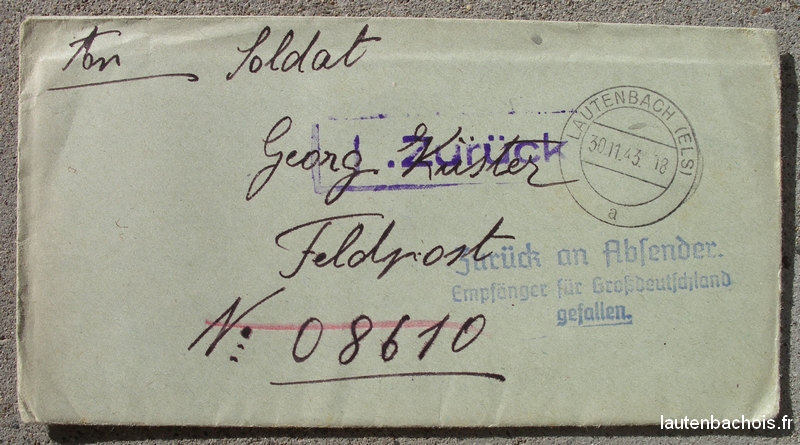 An Soldat
Georg Küster
Feldpost
No: 08610
Zurück
LAUTENBACH (ELS)
30.11.43. 18
a
Zurück an Absender.
Empfänger für Großdeutschland
gefallen.
lautenbachois.fr